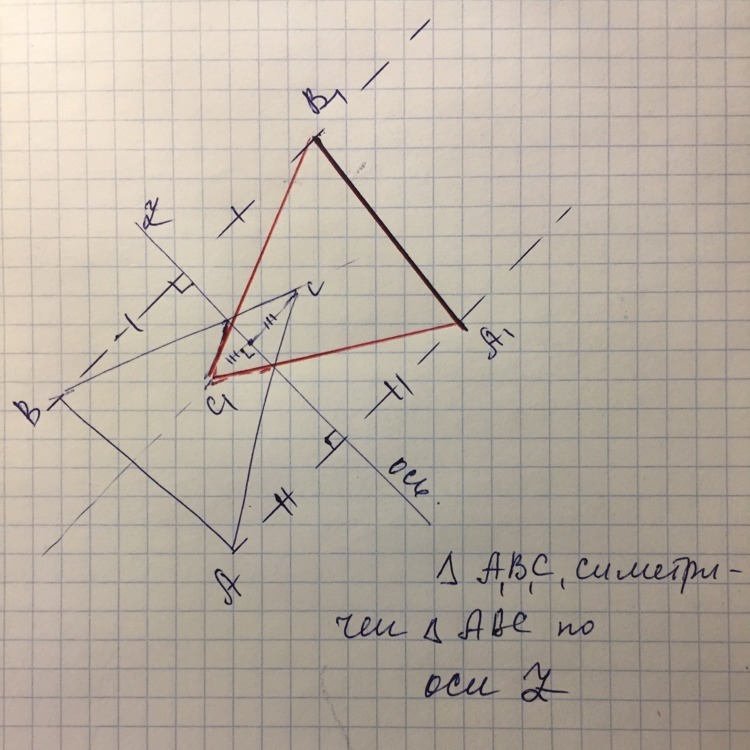 B₁
Z
C
A₁
C₁
B
ось
A
Δ A₁B₁C₁ симетри-
чен Δ ABC по
оси Z